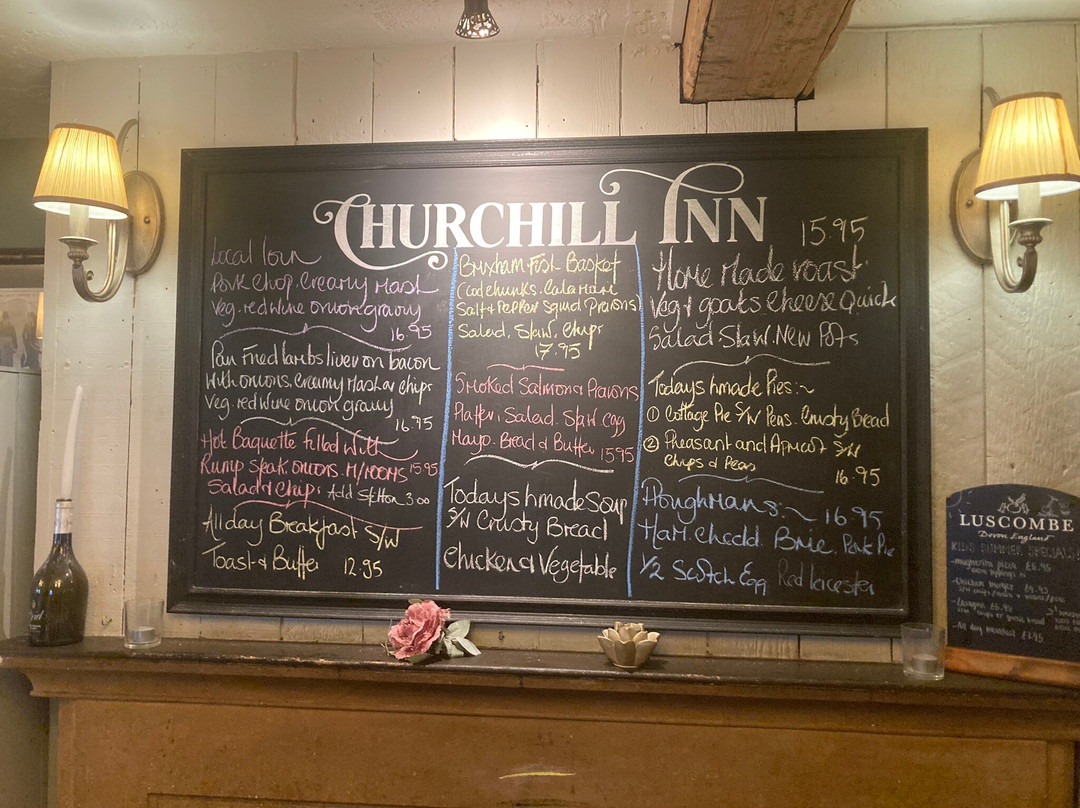 CHURCHILL INN
Local Loin
Pork Chop. Creamy Mash
Veg. red wine onion gravy
16.95
Pan Fried lambs liver on bacon
With onions. Creamy Mash or chips
Veg. red wine onion gravy
16.95
Hot Baguette filled With
Rump Steak onions. M/rooms 15.95
Salad & Chips Add Stilton 3.00
All day Breakfast S/W
Toast & Butter 12.95
Brixham Fish Basket
Cod chunks. Calamari
Salt & Pepper Squid Prawns
Salad. Slaw. Chips
17.95
Smoked Salmon & Prawns
Platter. Salad. Slaw Egg
Mayo. Bread & Butter 15.95
Todays hmade Soup
S/W Crusty Bread
Chicken & Vegetable
15.95
Home Made roast
Veg & goats Cheese Quich
Salad. Slaw. New POTs
Todays hmade Pies:~
① Cottage Pie S/W Peas. Crusty Bread
② Pheasant and Apricot S/W
Chips & Peas
16.95
Ploughmans:~ 16.95
Ham. Chedd. Brie. Pork Pie
1/2 Scotch Egg Red leicester
LUSCOMBE
Devon, England
KIDS SUMMER SPECIALS
- Margherita pizza £6.95
- Chicken burger £4.95
- Lasagne £6.95
- All day breakfast £6.95